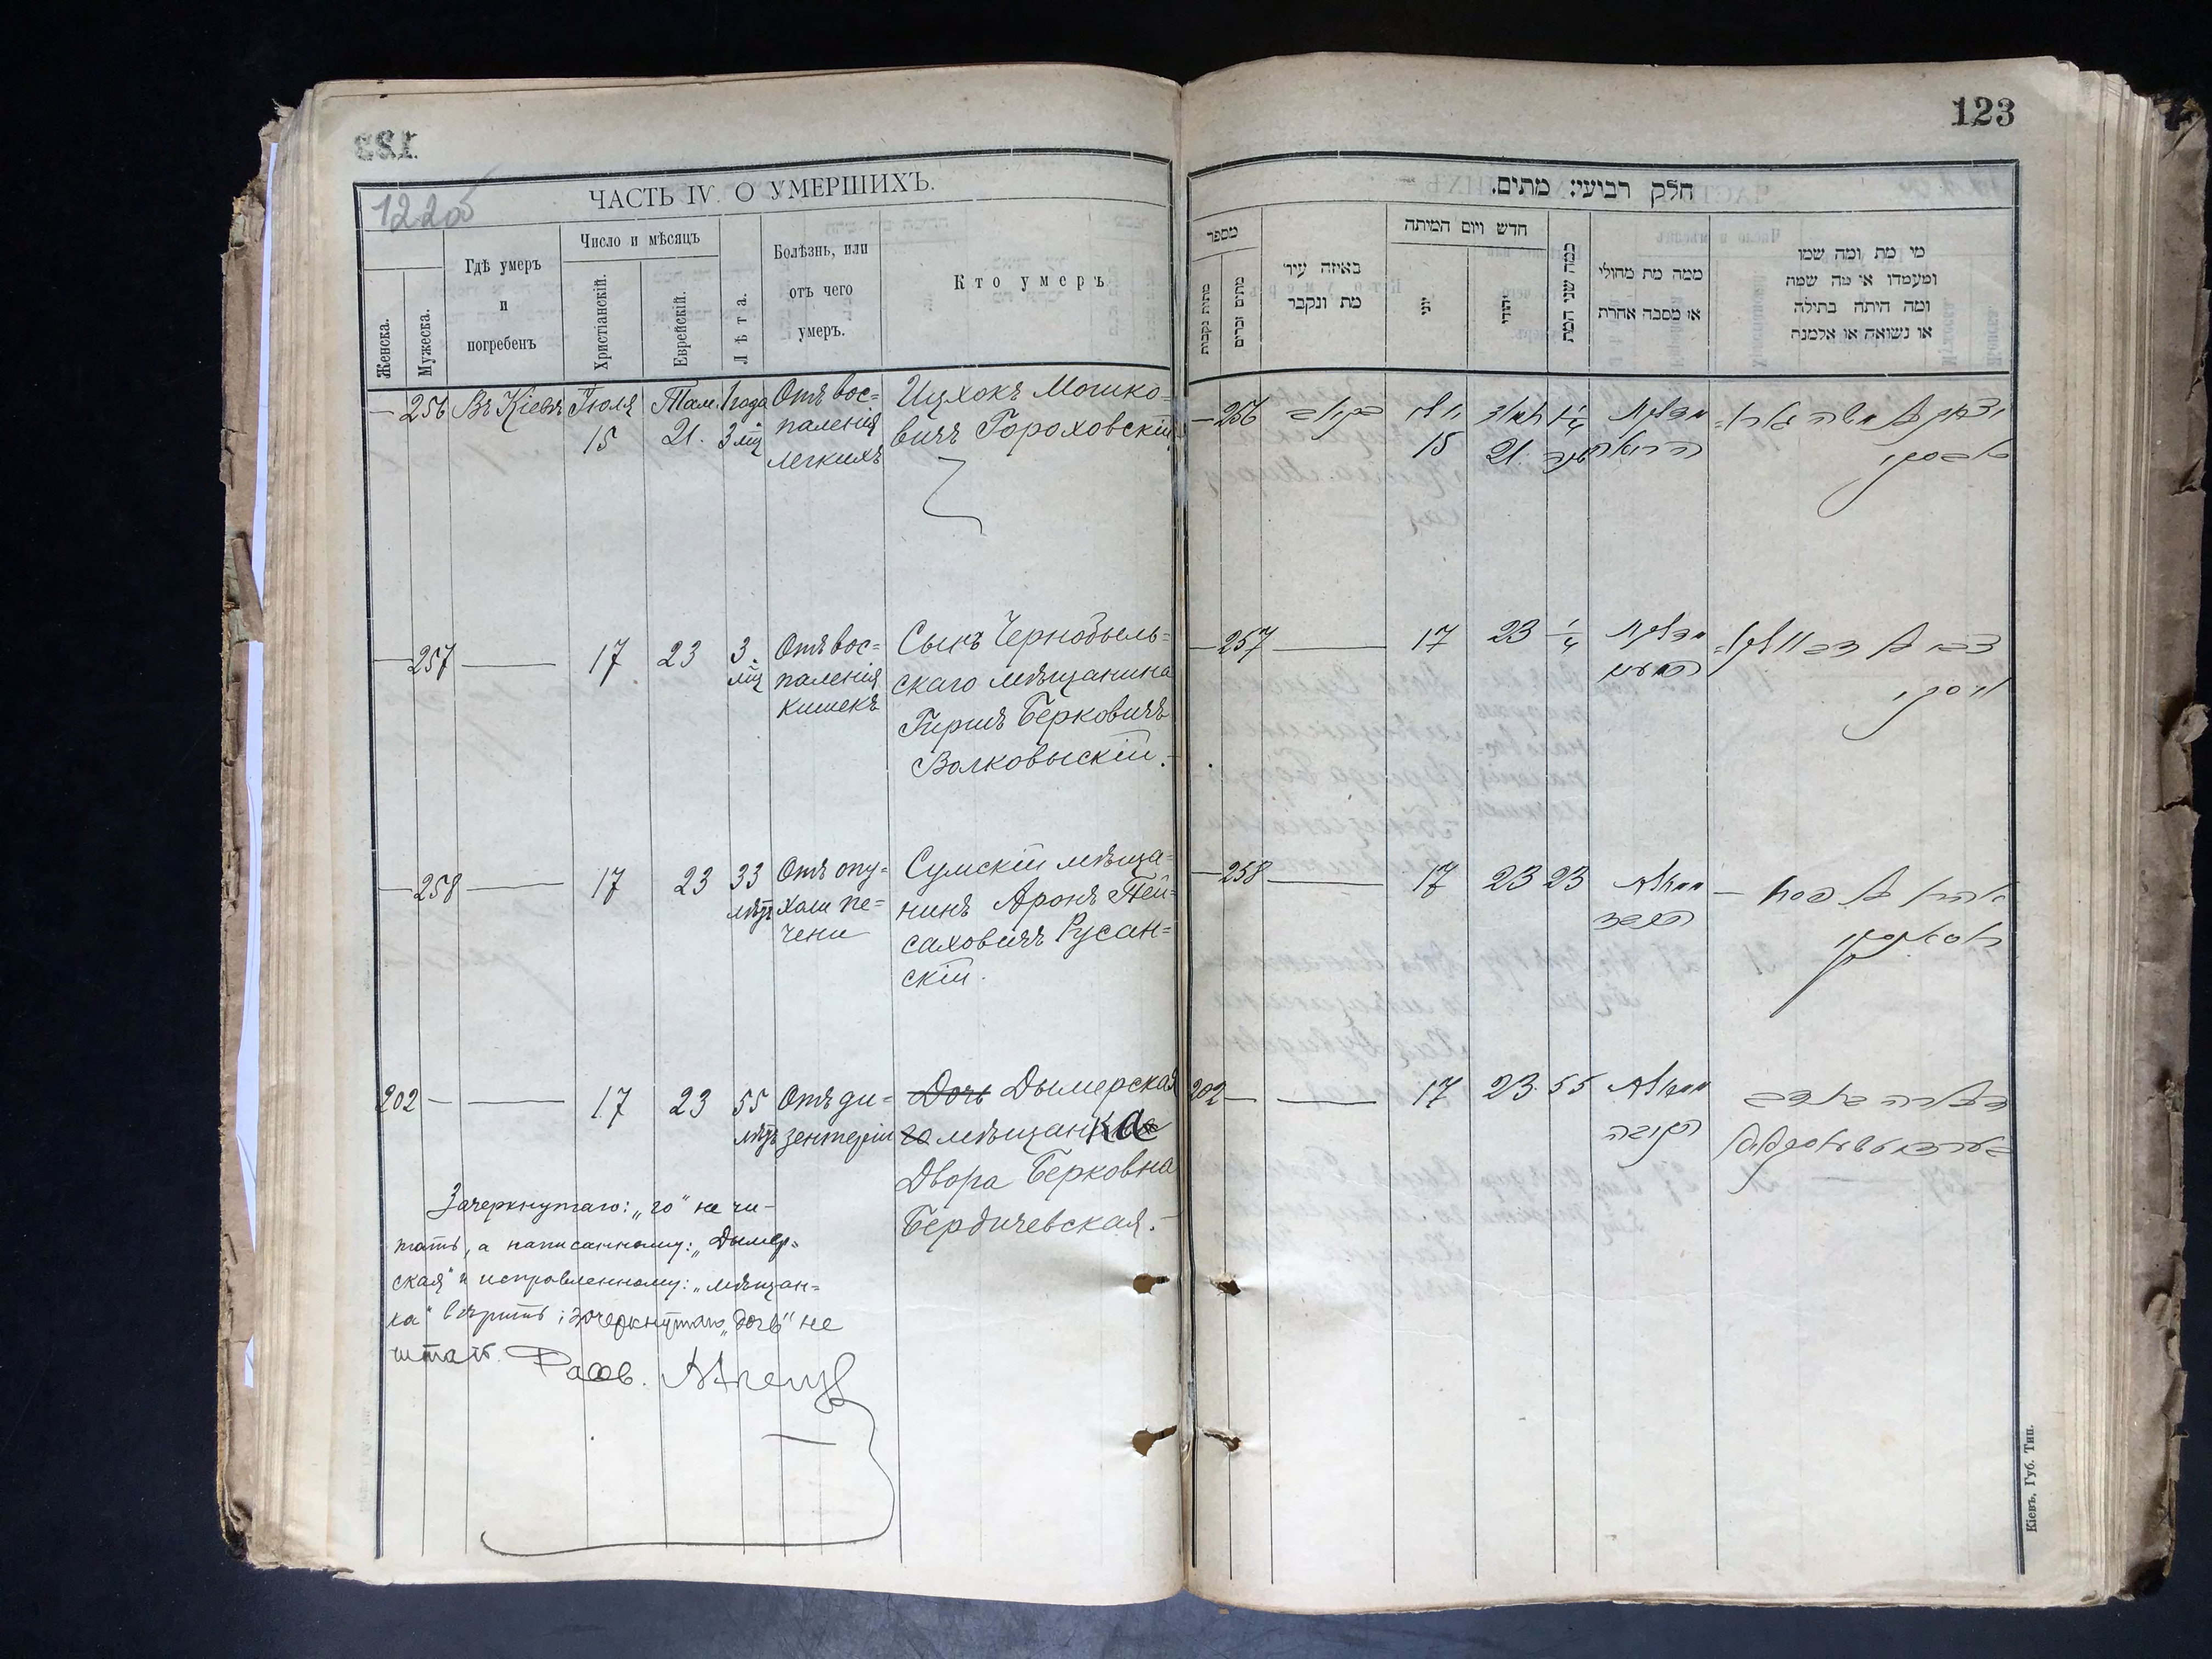 123
122об
ЧАСТЬ IV. О УМЕРШИХЪ.
Женска.
Мужеска.
Гдѣ умеръ
и
погребенъ
Число и мѣсяцъ
Христіанскій.
Еврейскій.
Лѣта.
Болѣзнь, или
отъ чего
умеръ.
Кто умеръ.
— 256 Въ Кіевѣ Іюля 15 Там. 21. 1 года 3 мц
Отъ вос=
паленія
легкихъ
Ицхокъ Мошко=
вичъ Гороховскій
— 257 — 17 23 3 мц
Отъ вос=
паленія
кишекъ
Сынъ Чернобыль=
скаго мѣщанина
Гершъ Берковичъ
Волковыскій.
— 258 — 17 23 33 лѣтъ
Отъ опу=
холи пе=
чени
Сумскій мѣща=
нинъ Аронъ Пей=
саховичъ Русан=
скій.
202 — — 17 23 55 лѣтъ
Отъ ди=
зентеріи
Дочь Дымерская
го мѣщанка
Двора Берковна
Бердичевская.
Зачеркнутаго: „го" не чи-
тать, а написанному: „Дымер=
ская" и исправленному: „мѣщан=
ка" вѣрить; зачеркнутаго „дочь" не
читать.
חלק רביעי: מתים.
מספר
מתות נקבות
מתים זכרים
באיזה עיר
מת ונקבר
חדש ויום המיתה
יוני
יהודי
כמה שני המת
ממה מת מחולי
או מסבה אחרת
מי מת ומה שמו
ומעמדו או מה שמה
ומה היתה בתולה
או נשואה או אלמנה
— 256 קיוב יולי 15 תמוז 21
מדלקת
הריאה
יצחק בן משה גארא=
כאווסקי
— 257 — 17 23 1/4
מדלקת
— 258 — 17 23 23
ממחלת
הכבד
אהרן בן פסח
רוסאנסקי
202 — — 17 23. 55
ממחלת
Кіевъ, Губ. Тип.